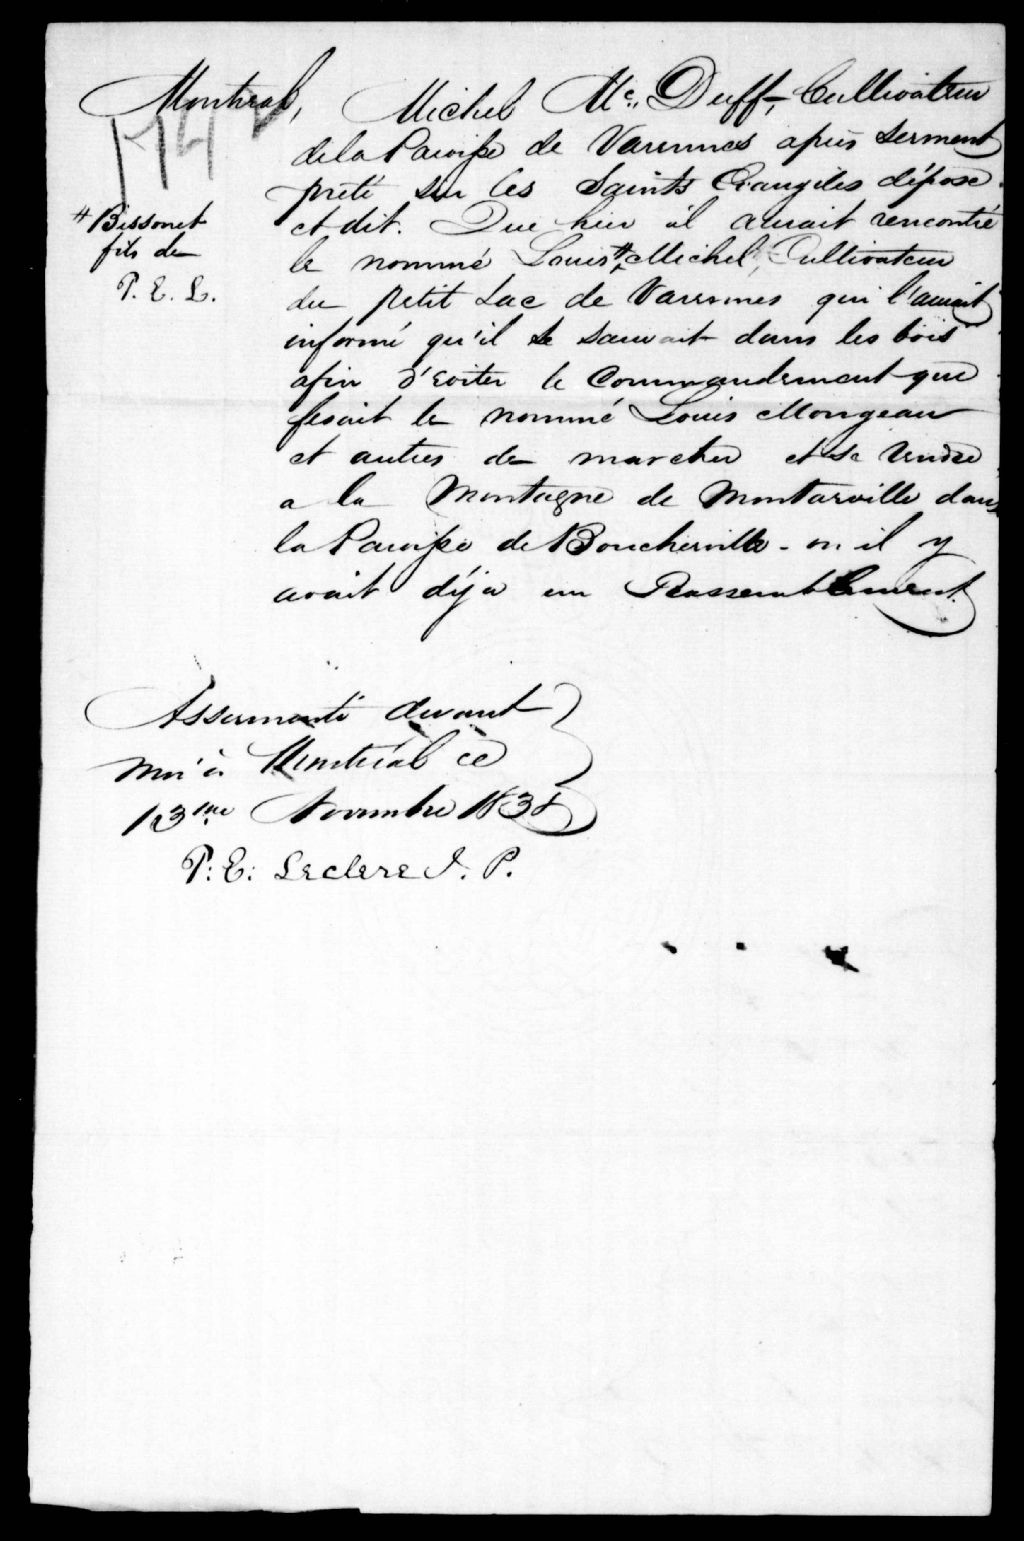 Montreal, Michel Mc. Duff, Cultivateur
de la Paroisse de Varennes après serment
prêté sur les Saints Evangiles dépose
et dit. Que hier il aurait rencontré
le nommé Louis # Michel, Cultivateur
du petit Lac de Varennes qui l'aurait
informé qu'il se sauvait dans les bois
afin d'eviter le Commandement que
fesait le nommé Louis Mongeau
et autres de marcher et se rendre
a la Montagne de Montarville dans
la Paroisse de Boucherville - ou il y
avait déja un Rassemblement.
# Bissonet
fils de
P. E. L.
Assermenté devant
moi à Montréal ce
13me Novembre 1838
P: E: Leclere J. P.